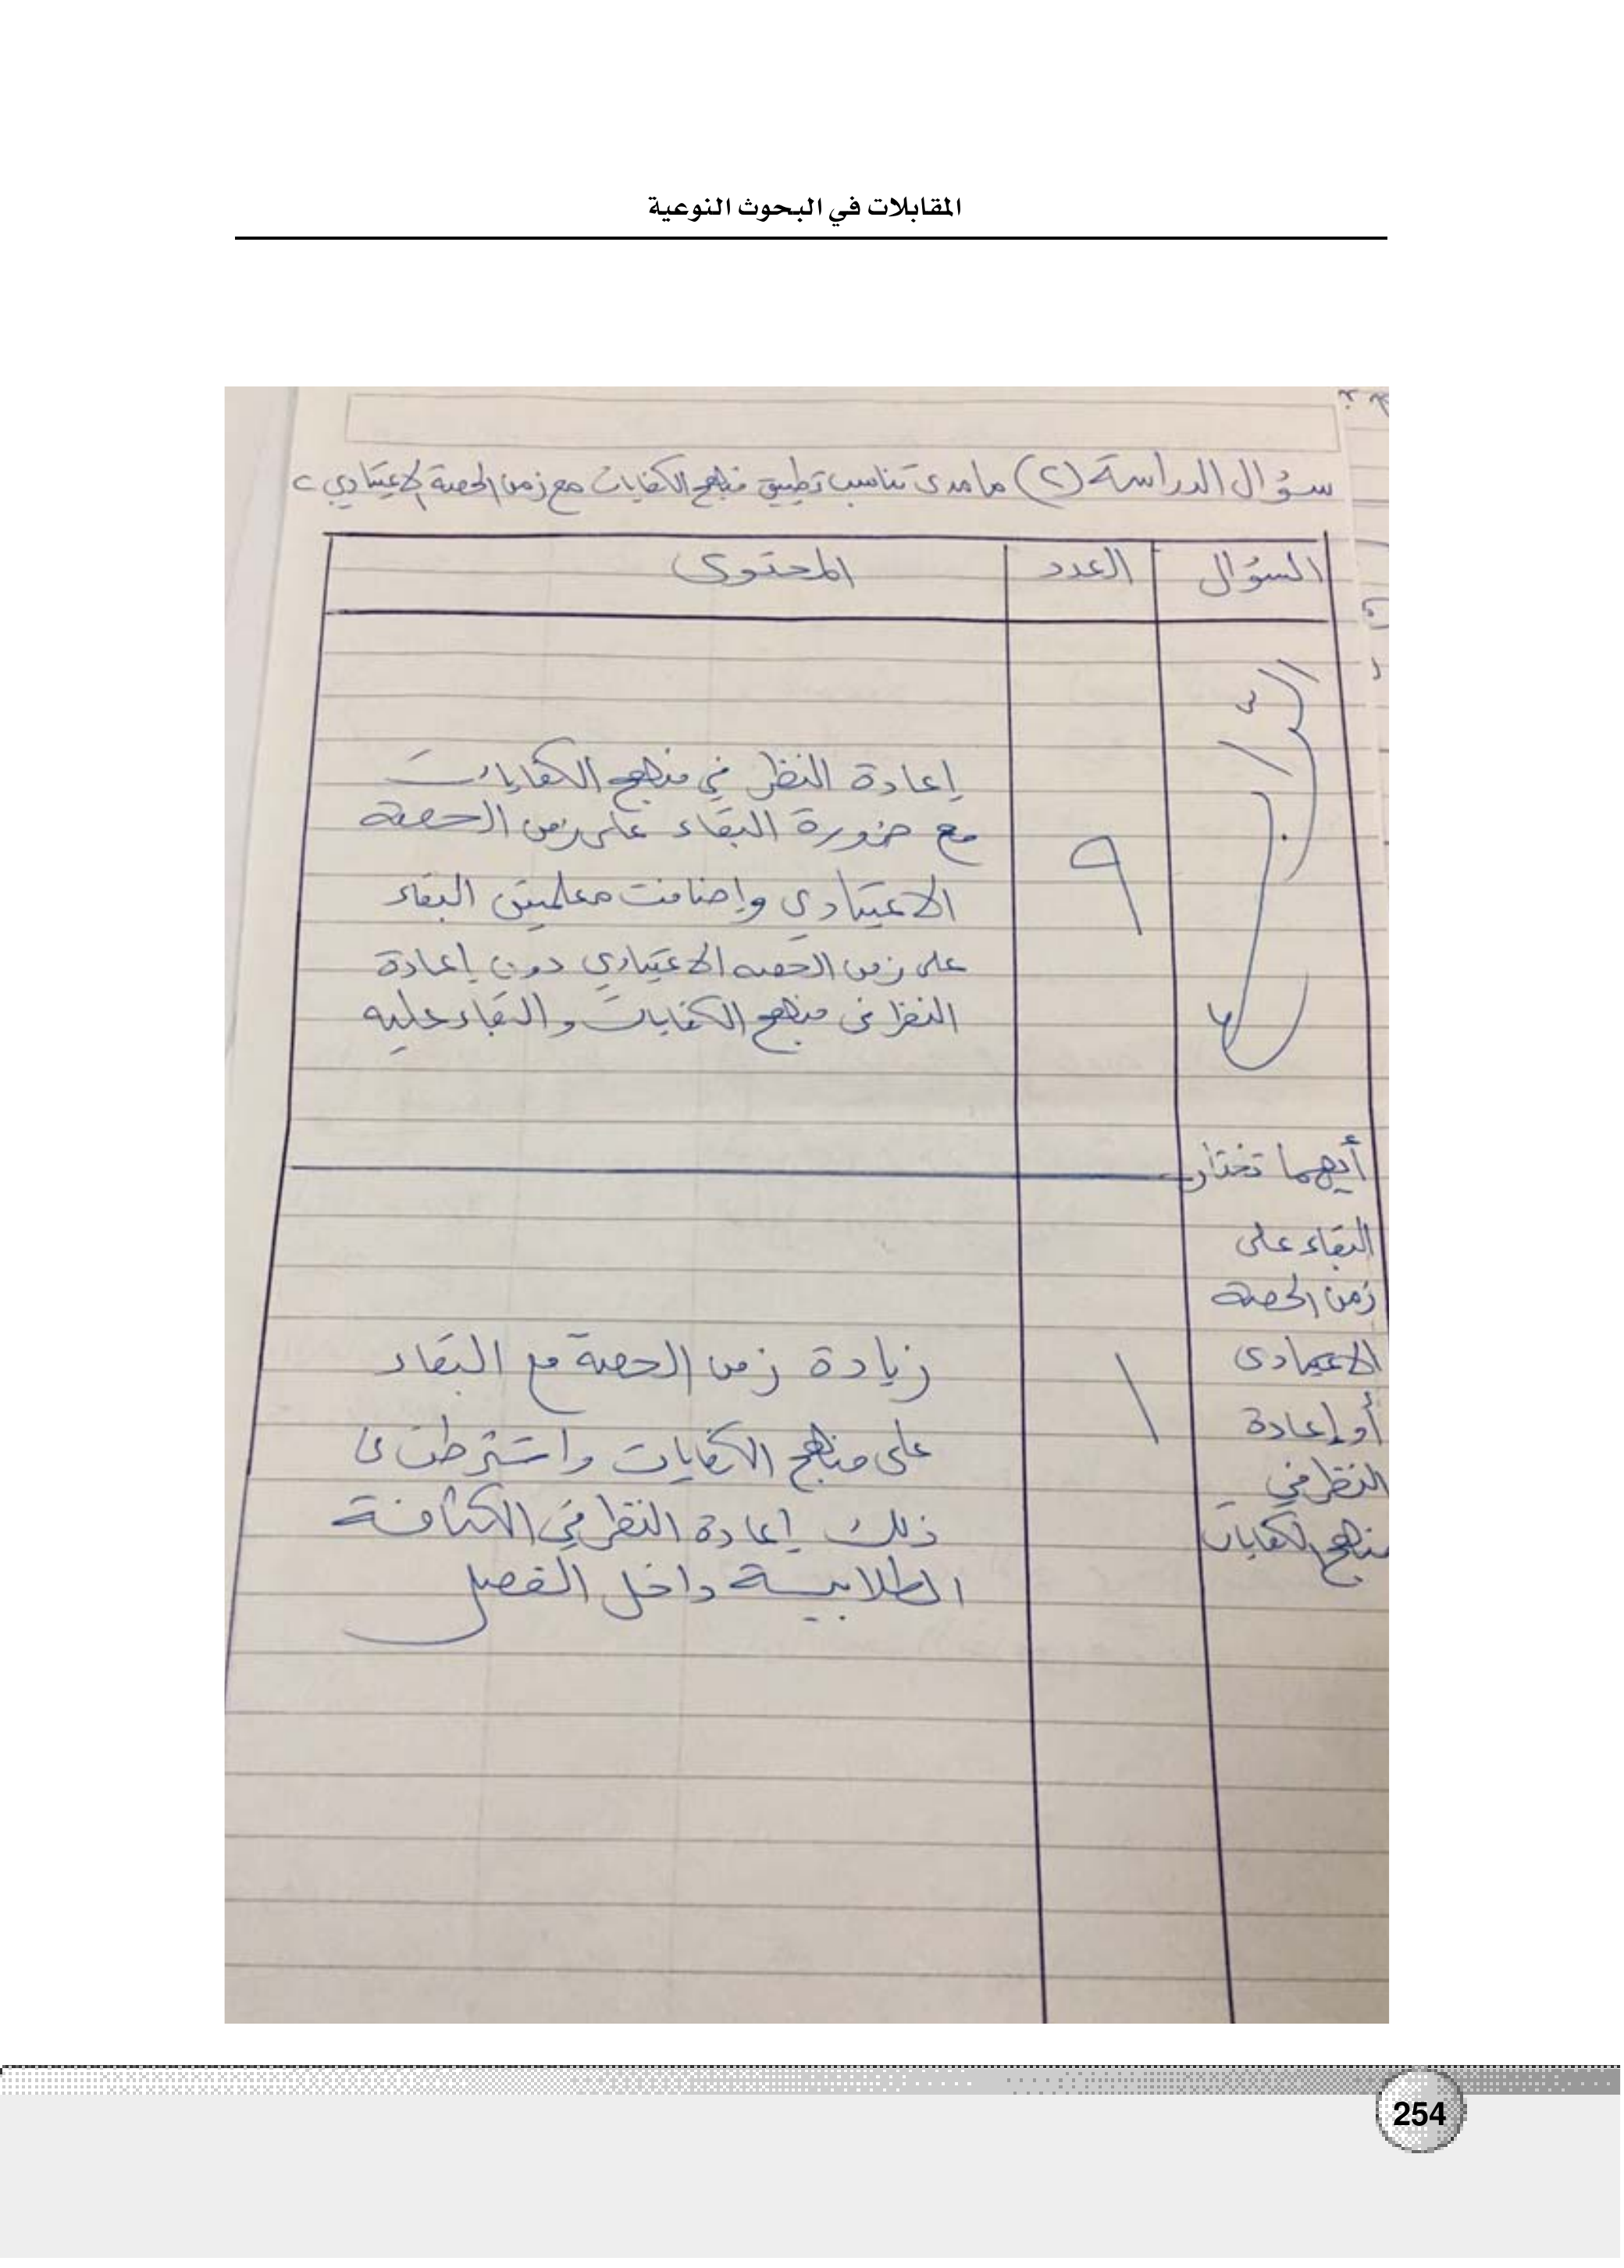 المقابلات في البحوث النوعية
سؤال الدراسة (٢) ما مدى تناسب تطبيق منهج الكفايات مع زمن الحصة الاعتيادي ؟
السؤال
العدد
المحتوى
٩
إعادة النظر في منهج الكفايات
مع ضرورة البقاء على زمن الحصة
الاعتيادي وإضافت معلمتين البقاء
على زمن الحصه الاعتيادي دون إعادة
النظر في منهج الكفايات والبقاء عليه
أيهما تختار
البقاء على
زمن الحصة
الاعتيادى
أو إعادة
النظر في
منهج الكفايات
١
زيادة زمن الحصة مع البقاء
على منهج الكفايات واشترطت في
ذلك إعادة النظر في الكثافة
الطلابية داخل الفصل
254